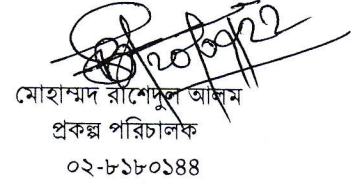 ২০/০৭/২২
মোহাম্মদ রাশেদুল আলম
প্রকল্প পরিচালক
০২-৮১৮০১৪৪